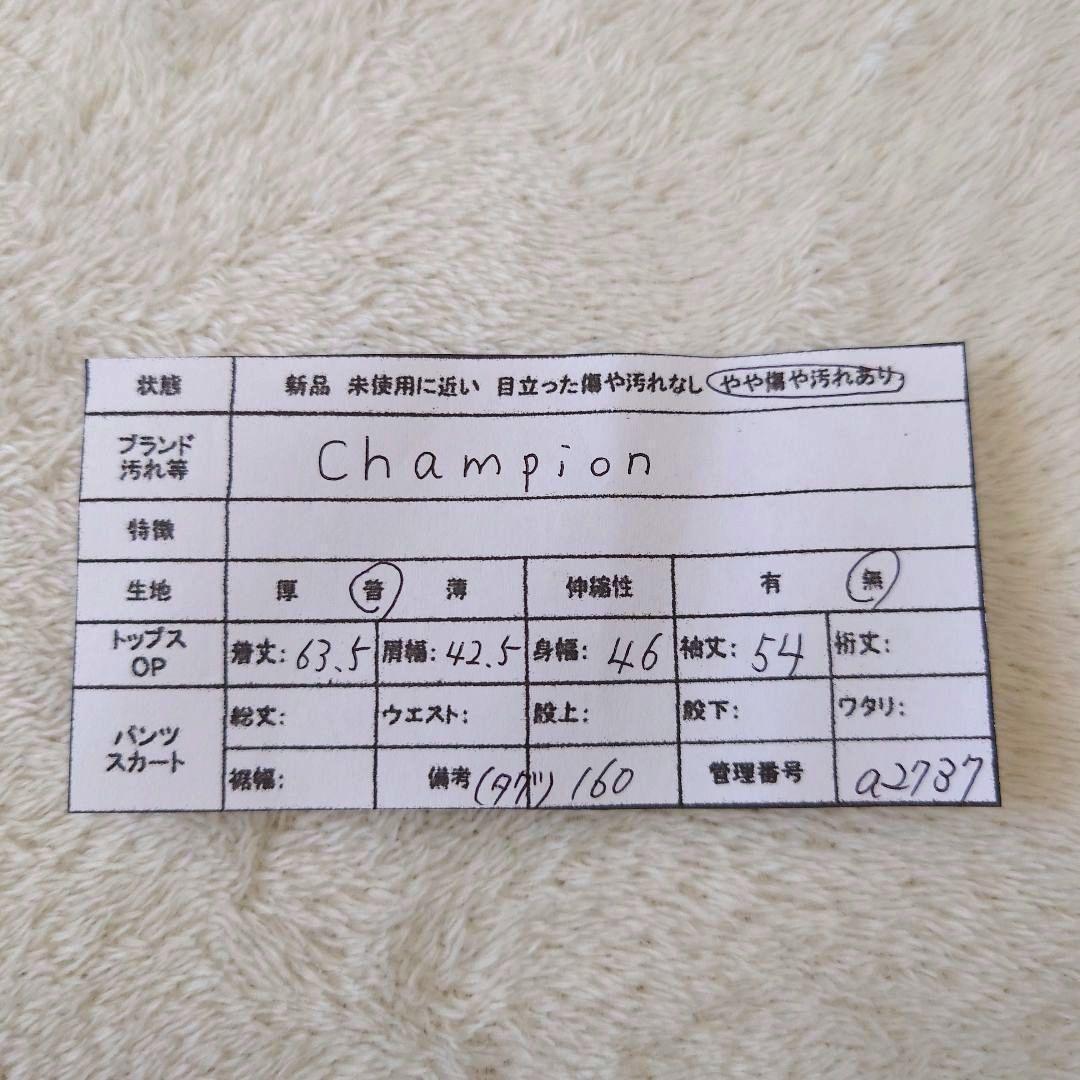 状態 新品 未使用に近い 目立った傷や汚れなし やや傷や汚れあり
ブランド
汚れ等
Champion
特徴
生地 厚 普 薄 伸縮性 有 無
トップス
OP
着丈: 63.5 肩幅: 42.5 身幅: 46 袖丈: 54 裄丈:
パンツ
スカート
総丈: ウエスト: 股上: 股下: ワタリ:
裾幅: 備考 (タグ) 160 管理番号 a2737